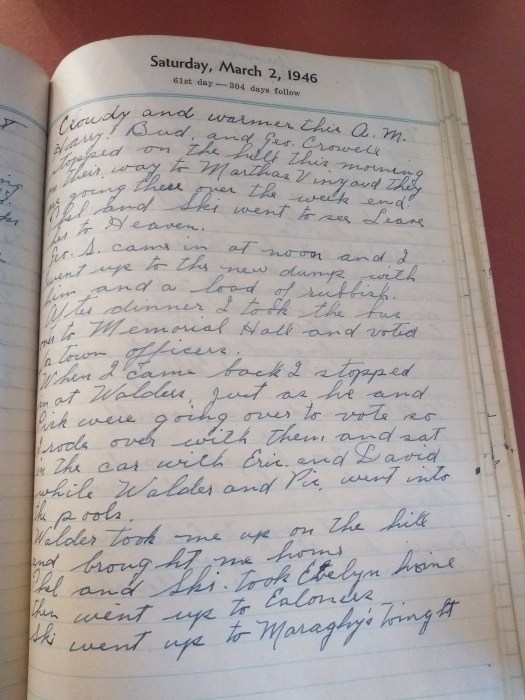 Saturday, March 2, 1946
61st day — 304 days follow
Cloudy and warmer this A. M.
Harry! Bud, and Geo. Crowell
stopped on the hill this morning
on their way to Marthas Vinyard they
are going there over the week end.
and Ski went to see Leave
Her to Heaven.
Geo. S. came in at noon and I
went up to the new dump with
him and a load of rubbish.
After dinner I took the bus
over to Memorial Hall and voted
for town officers.
When I came back I stopped
in at Walders, just as he and
were going over to vote so
I rode over with them and sat
in the car with Eric. and David
while Walder and Vic, went into
the pools.
Walder took me up on the hill
and brought me home
and Ski. took Evelyn home
then went up to
Ski went up to Maraghy's tonight